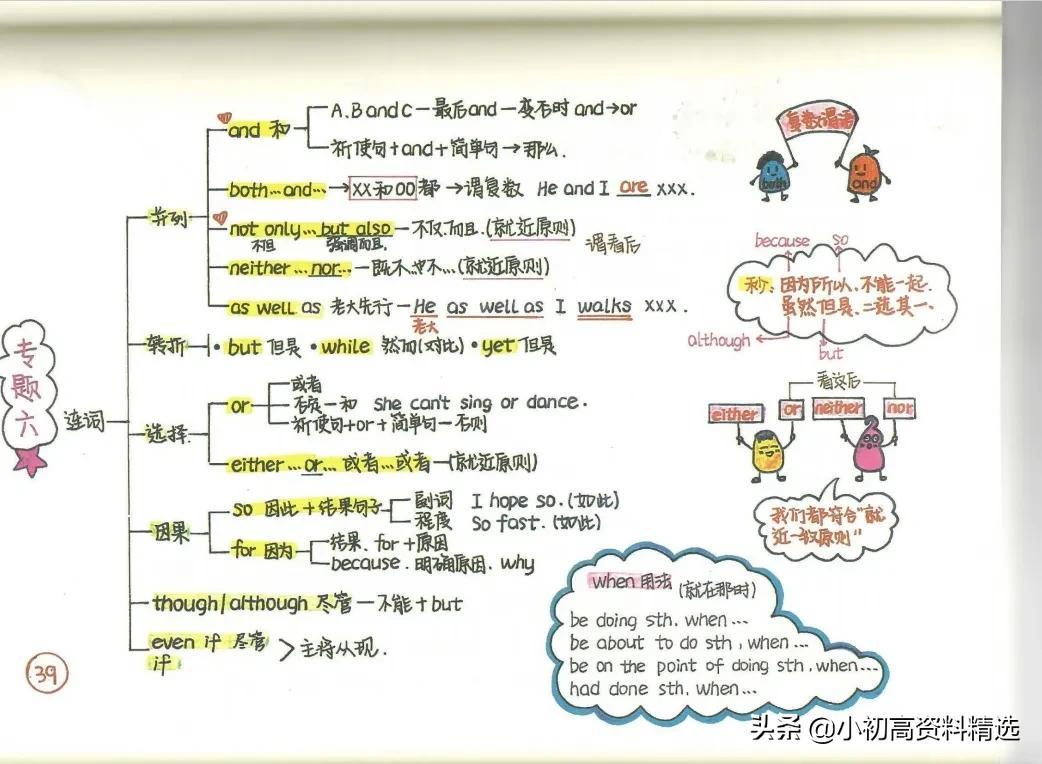 专题六
连词
并列
and 和
A、B and C — 最后and — 变否时 and→or
祈使句+and+简单句→那么.
both…and…→XX和OO都→谓复数 He and I are xxx.
not only…but also — 不仅.而且.(就近原则)
不但 强调而且.
谓看后
neither…nor…—既不…也不…(就近原则)
as well as 老大先行—He as well as I walks xxx.
老大
转折
·but 但是 ·while 然而(对比) ·yet 但是
选择
or
或者
否定—和 She can't sing or dance.
祈使句+or+简单句—否则
either…or…或者…或者—(就近原则)
因果
so 因此+结果句子
副词 I hope so.(如此)
程度 So fast.(如此)
for 因为
结果、for+原因
because.明确原因、why
though/although 尽管—不能+but
even if 尽管
if
主将从现.
39
复数谓语
both
and
because
so
因为所以、不能一起.
虽然但是、二选其一、
although
but
看这后
either
or
neither
nor
我们都符合"就
近一致原则"
when 用法 (就在那时)
be doing sth, when…
be about to do sth, when…
be on the point of doing sth, when…
had done sth, when…
头条 @小初高资料精选